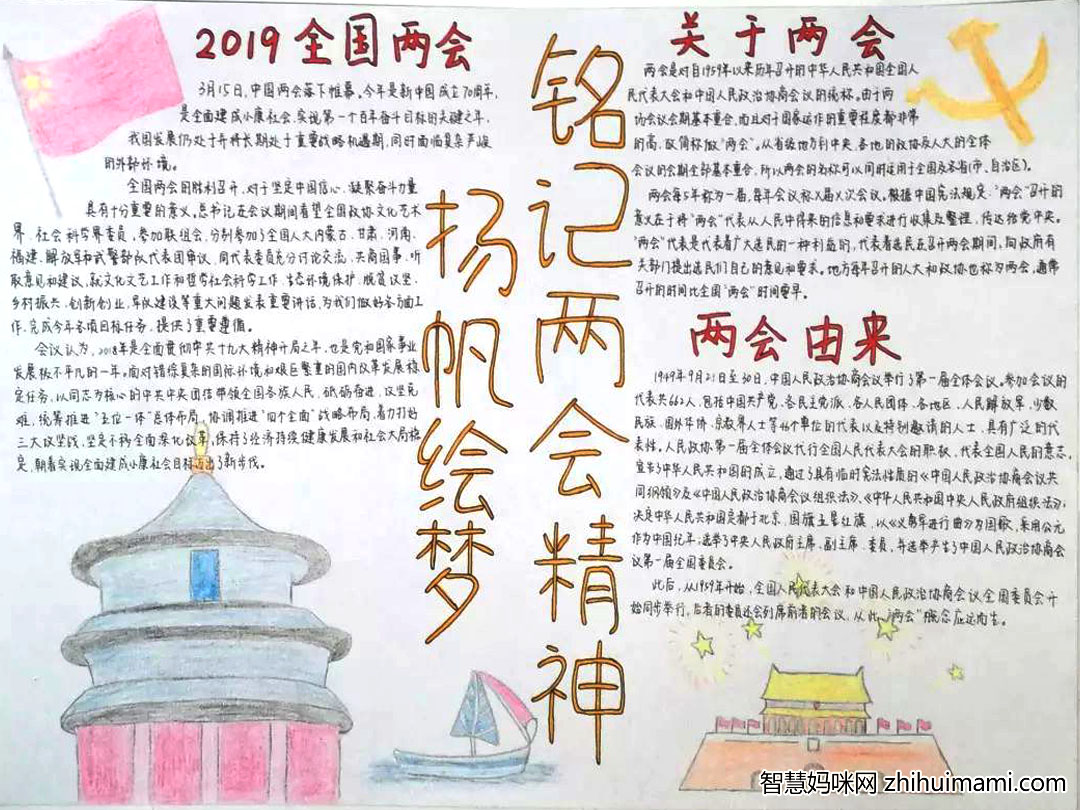 2019全国两会
3月15日,中国两会落下帷幕。今年是新中国成立70周年,
是全面建成小康社会、实现第一个百年奋斗目标的关键之年,
我国发展仍处于并将长期处于重要战略机遇期,同时面临复杂严峻
的外部环境。
全国两会的胜利召开,对于坚定中国信心、凝聚奋斗力量
具有十分重要的意义。总书记在会议期间看望全国政协文化艺术
界、社会科学界委员,参加联组会,分别参加了全国人大内蒙古、甘肃、河南、
福建、解放军和武警部队代表团审议,同代表委员充分讨论交流、共商国事,听
取意见和建议,就文化文艺工作和哲学社会科学工作、生态环境保护、脱贫攻坚、
乡村振兴、创新创业、军队建设等重大问题发表重要讲话,为我们做好各方面工
作、完成今年各项目标任务,提供了重要遵循。
会议认为,2018年是全面贯彻中共十九大精神开局之年,也是党和国家事业
发展极不平凡的一年。面对错综复杂的国际环境和艰巨繁重的国内改革发展稳
定任务,以同志为核心的中共中央团结带领全国各族人民,砥砺奋进、攻坚克
难,统筹推进"五位一体"总体布局、协调推进"四个全面"战略布局,着力打好
三大攻坚战,坚定不移全面深化改革,保持了经济持续健康发展和社会大局稳
定,朝着实现全面建成小康社会目标迈出了新步伐。
铭记两会精神
扬帆绘梦
关于两会
两会是对自1959年以来历年召开的中华人民共和国全国人
民代表大会和中国人民政治协商会议的统称。由于两
场会议会期基本重合,而且对于国家运作的重要程度都非常
的高,故简称做"两会"。从省级地方到中央,各地的政协及人大的全体
会议的会期全部基本重合,所以两会的名称可以同时适用于全国及各省(市、自治区)。
两会每5年称为一届,每年会议称X届X次会议。根据中国宪法规定:"两会"召开的
意义在于将"两会"代表从人民中得来的信息和要求进行收集及整理,传达给党中央。
"两会"代表是代表着广大选民的一种利益的,代表着选民在召开两会期间,向政府有
关部门提出选民们自己的意见和要求。地方每年召开的人大和政协也称为两会,通常
召开的时间比全国"两会"时间要早。
两会由来
1949年9月21日至30日,中国人民政治协商会议举行了第一届全体会议。参加会议的
代表共662人,包括中国共产党、各民主党派、各人民团体、各地区、人民解放军、少数
民族、国外华侨、宗教界人士等46个单位的代表以及特别邀请的人士,具有广泛的代
表性。人民政协第一届全体会议代行全国人民代表大会的职权,代表全国人民的意志,
宣告了中华人民共和国的成立,通过了具有临时宪法性质的《中国人民政治协商会议共
同纲领》及《中国人民政治协商会议组织法》、《中华人民共和国中央人民政府组织法》;
决定中华人民共和国定都于北京、国旗五星红旗,以《义勇军进行曲》为国歌,采用公元
作为中国纪年;选举了中央人民政府主席、副主席、委员,并选举产生了中国人民政治协商会
议第一届全国委员会。
此后,从1959年开始,全国人民代表大会和中国人民政治协商会议全国委员会开
始同步举行,后者的委员还会列席前者的会议,从此,"两会"概念应运而生。
智慧妈咪网 zhihuimami.com